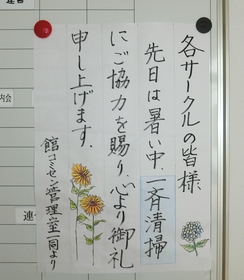 各サークルの皆様、
先日は暑い中、一斉清掃
にご協力を賜り、心より御礼
申し上げます。
館コミセン管理室一同より